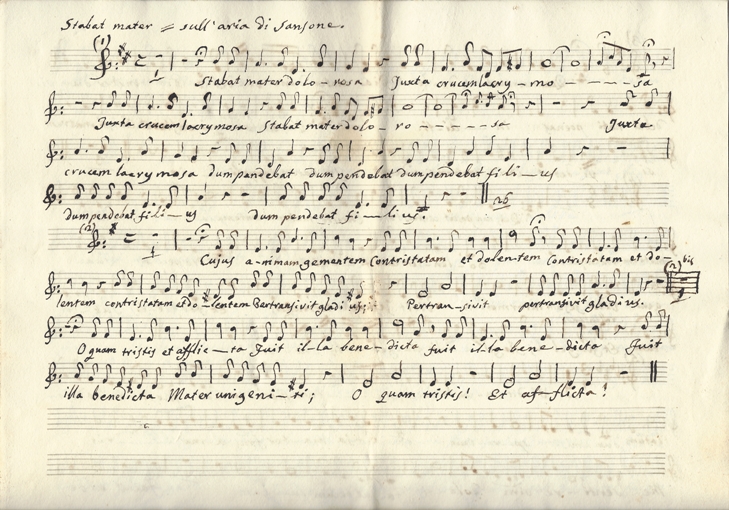 Stabat mater = sull'aria di Sansone.
(1)
Stabat mater dolo - rosa Juxta crucem lacry - mo - - - - - sa
Juxta crucem lacrymosa Stabat mater dolo - ro - - - - - sa Juxta
crucem lacrymosa dum pendebat dum pendebat dum pendebat fili - us
dum pendebat fili - us dum pendebat fi - li us.
(2)
Cujus a - nimam gementem Contristatam et dolen - tem Contristatam et do -
bis
lentem contristatam et do - lentem Pertransivit gladi us; Pertran - sivit pertransivit gladius.
O quam tristis et afflic - ta Fuit il - la bene - dicta fuit il - la bene - dicta Fuit
illa benedicta Mater unigeni - ti; O quam tristis! Et af - flicta!